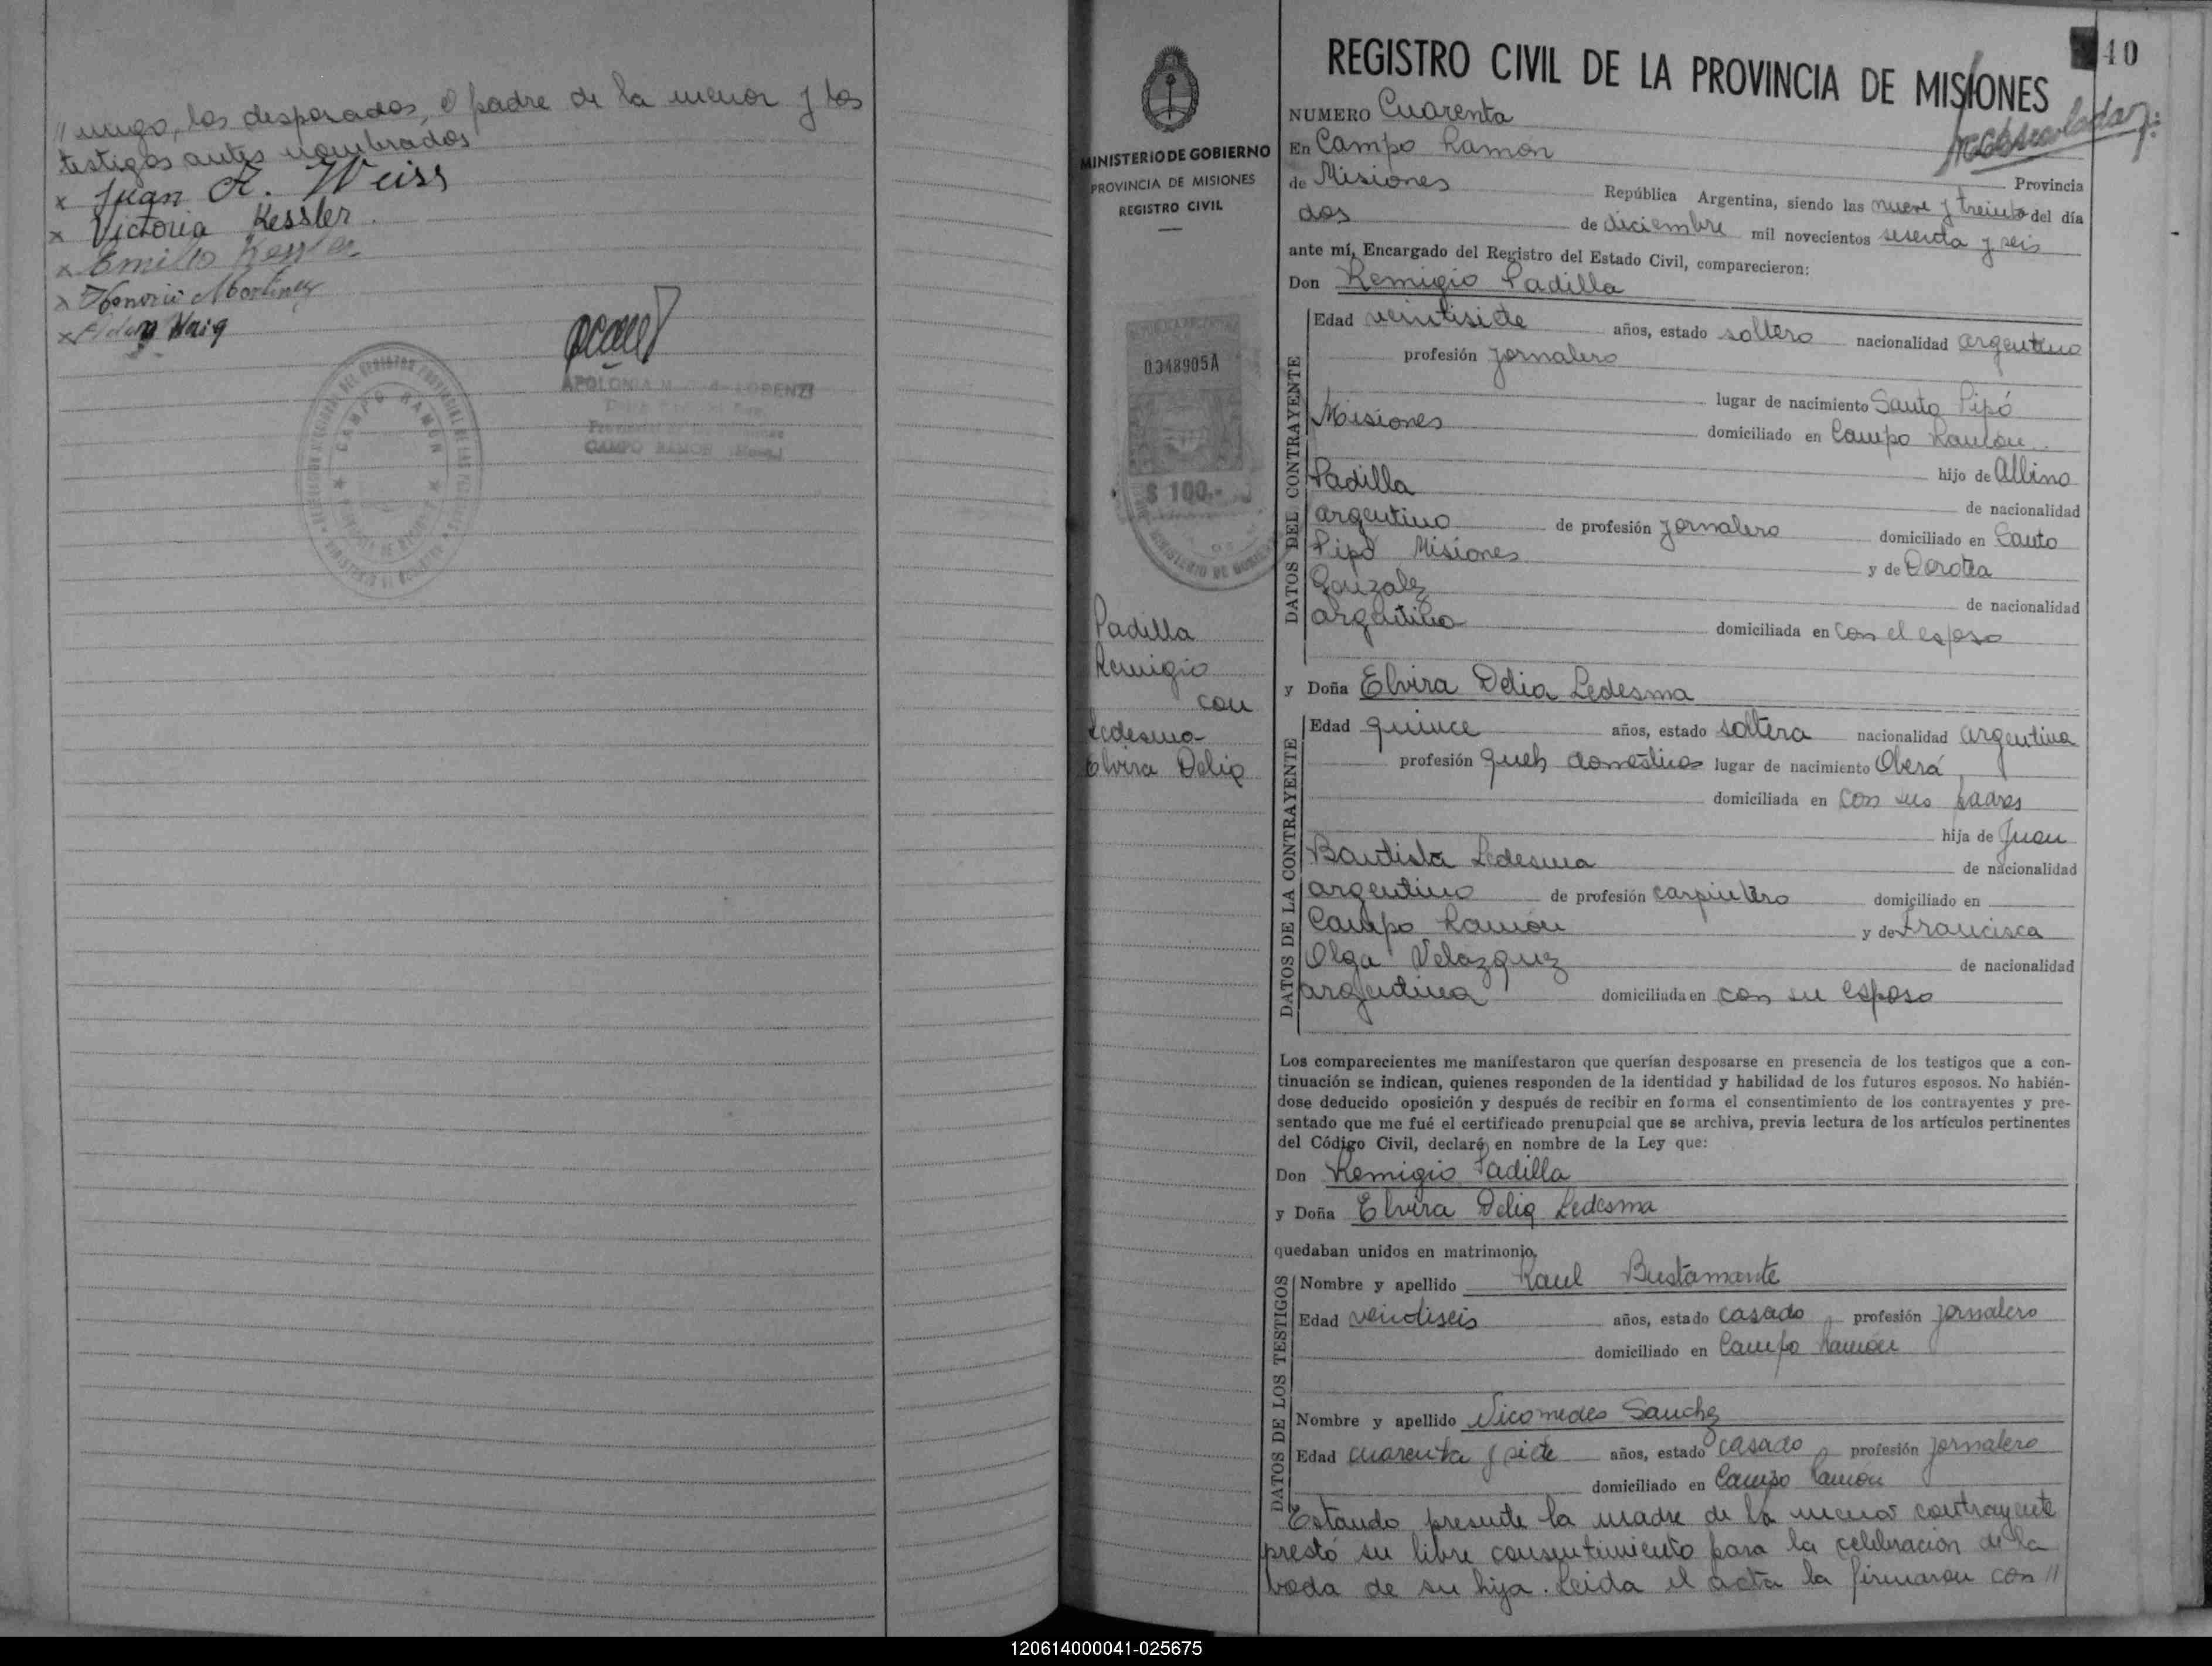 // migo, los desposados, el padre de la menor y los
testigos antes nombrados
x Juan A. Weiss
x Victoria Kessler.
x Emilio Kessler
x Honorio Martinez
x
APOLONIA M. LORENZI
CAMPO RAMON
CAMPO RAMON
MINISTERIO DE GOBIERNO
PROVINCIA DE MISIONES
REGISTRO CIVIL
0348905A
$ 100.-
MINISTERIO DE GOBIERNO
Padilla
Remigio
con
Ledesma
Elvira Delia
40
REGISTRO CIVIL DE LA PROVINCIA DE MISIONES
NUMERO Cuarenta
En Campo Ramon Provincia
de Misiones República Argentina, siendo las nueve y treinta del día
dos de diciembre mil novecientos sesenta y seis
ante mí, Encargado del Registro del Estado Civil, comparecieron:
Don Remigio Padilla
DATOS DEL CONTRAYENTE
Edad veintisiete años, estado soltero nacionalidad argentino
profesión jornalero
lugar de nacimiento Santo Pipó
Misiones domiciliado en Campo Ramón
hijo de Albino
Padilla de nacionalidad
argentino de profesión jornalero domiciliado en Santo
Pipó Misiones y de Dorotea
Gonzalez de nacionalidad
argentina domiciliada en con el esposo
y Doña Elvira Delia Ledesma
DATOS DE LA CONTRAYENTE
Edad quince años, estado soltera nacionalidad argentina
profesión queh domésticos lugar de nacimiento Oberá
domiciliada en con sus padres
hija de Juan
Bautista Ledesma de nacionalidad
argentino de profesión carpintero domiciliado en
Campo Ramón y de Francisca
Olga Velazquez de nacionalidad
argentina domiciliada en con su esposo
Los comparecientes me manifestaron que querían desposarse en presencia de los testigos que a con-
tinuación se indican, quienes responden de la identidad y habilidad de los futuros esposos. No habién-
dose deducido oposición y después de recibir en forma el consentimiento de los contrayentes y pre-
sentado que me fué el certificado prenupcial que se archiva, previa lectura de los artículos pertinentes
del Código Civil, declaré en nombre de la Ley que:
Don Remigio Padilla
y Doña Elvira Delia Ledesma
quedaban unidos en matrimonio.
DATOS DE LOS TESTIGOS
Nombre y apellido Raul Bustamante
Edad veintiseis años, estado casado profesión jornalero
domiciliado en Campo Ramón
Nombre y apellido Nicomedes Sanchez
Edad cuarenta y siete años, estado casado profesión jornalero
domiciliado en Campo Ramón
Estando presente la madre de la menor contrayente
prestó su libre consentimiento para la celebración de la
boda de su hija. Leida el acta la firmaron con //
120614000041-025675